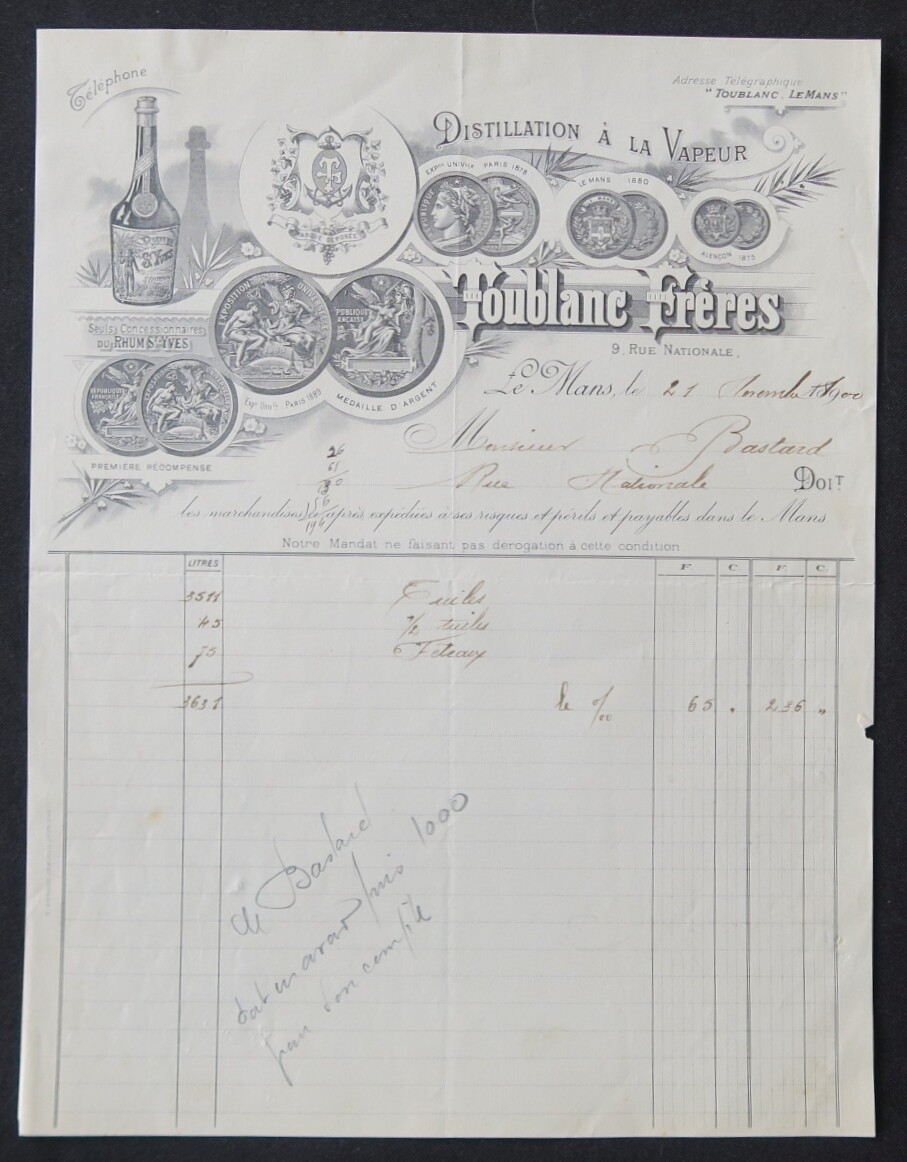 Téléphone
Adresse Télégraphique
"TOUBLANC. LEMANS"
DISTILLATION À LA VAPEUR
MARQUE DÉPOSÉE
EXPon UNIVlle PARIS 1878
LE MANS 1880
ALENÇON 1873
RHUM
St YVES
EXPOSITION UNIVERSELLE
RÉPUBLIQUE FRANÇAISE
Toublanc Frères
Seuls Concessionnaires
DU RHUM St YVES
9, RUE NATIONALE,
Expon Univlle PARIS 1889
MÉDAILLE D'ARGENT
RÉPUBLIQUE FRANÇAISE
PREMIÈRE RÉCOMPENSE
Le Mans, le 21 Novembre 1900
Monsieur Bastard
Rue Nationale DOIT
26
61
les marchandises ci après expédiées à ses risques et périls et payables dans le Mans
196
Notre Mandat ne faisant pas dérogation à cette condition
LITRES F. C. F. C.
3511 Tuiles
45 1/2 tuiles
75
3631 le %00 65 . 236 "
de Bastard
1000
son compte